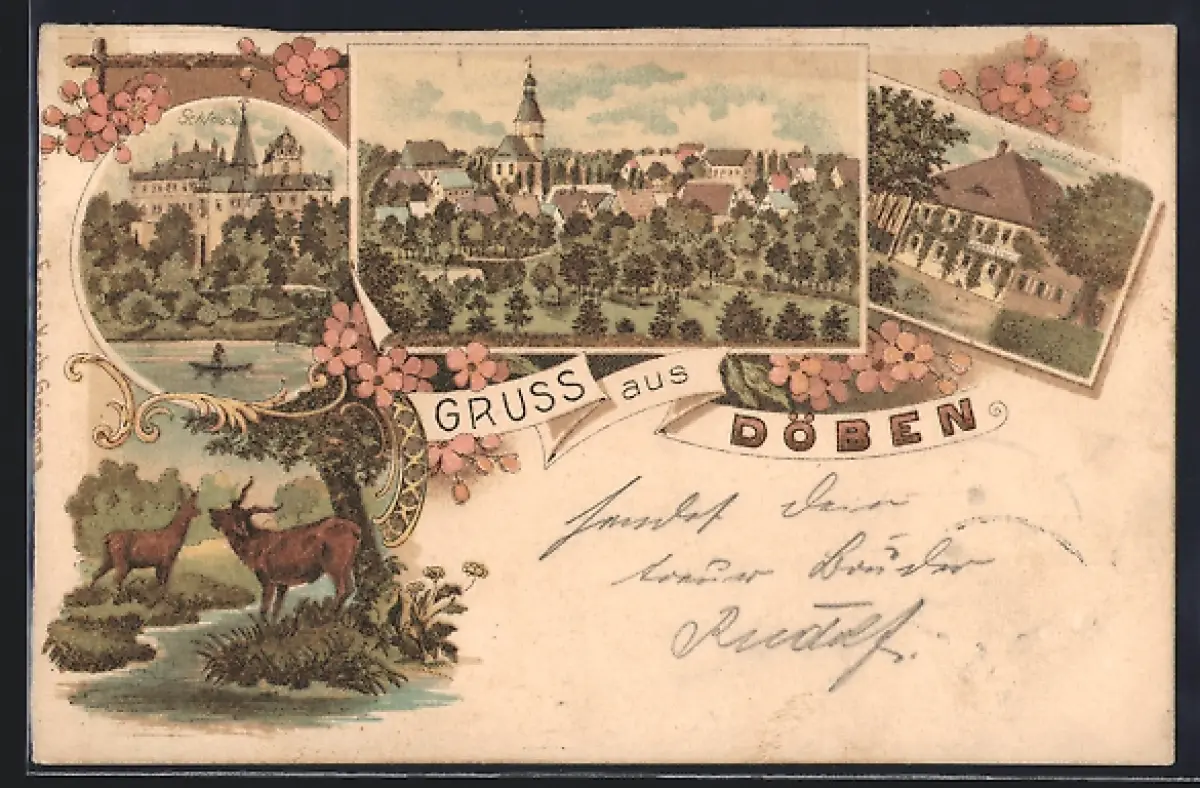 Schloss
GRUSS aus DÖBEN
sendet Dein
treuer Bruder
Rudolf.